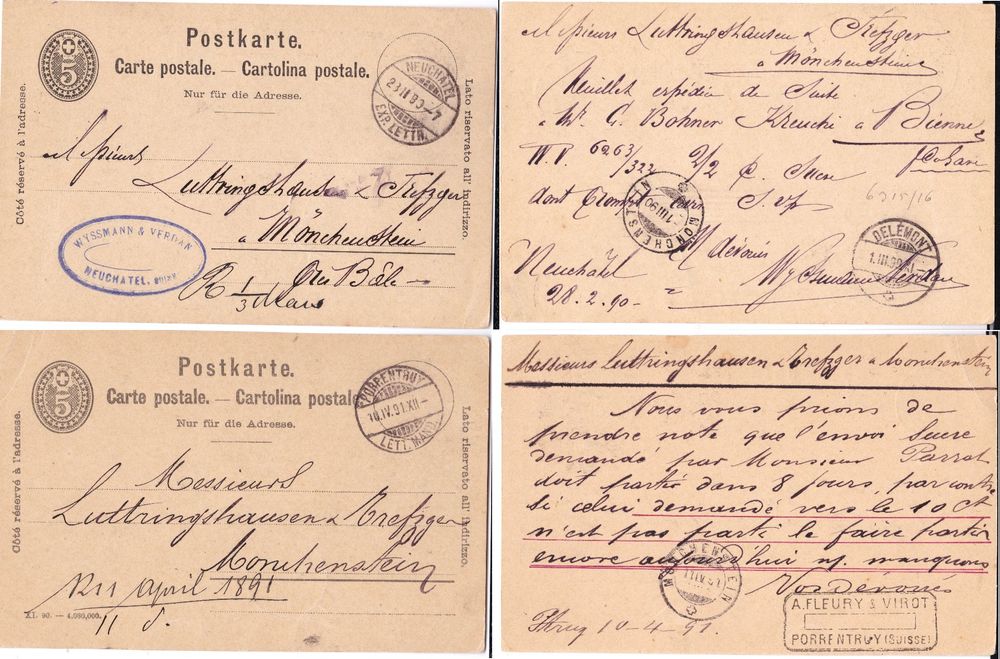 Postkarte.
Carte postale. — Cartolina postale.
Nur für die Adresse.
5
Côté réservé à l'adresse.
Lato riservato all' indirizzo.
NEUCHATEL
EXP. LETTR.
Messieurs
Luttringshausen & Trefzger
à Mönchenstein
près Bâle
WYSSMANN & VERDAN
NEUCHATEL, SUISSE
R 1/3 Mars
Messieurs Luttringshausen & Trefzger
à Mönchenstein
Veuillez expédier de Suite
à Mr. G. Bohner Kreuchi à Bienne
W V. 6263/322 2/2 Sucre
6315/16
dont
MÖNCHENSTEIN
1.III.90
DELÉMONT
1.III.90.XI
Neuchâtel
28.2.90
Wyssmann Verdan
Postkarte.
Carte postale. — Cartolina postale.
Nur für die Adresse.
5
Côté réservé à l'adresse.
Lato riservato all' indirizzo.
PORRENTRUY
10.IV.91.XII
LETT. MAND.
Messieurs
Luttringshausen & Trefzger
Monchenstein
R 11 april 1891
11 d.
XI. 90. — 4,000,000.
Messieurs Luttringshausen & Trefzger à Monchenstein
Nous vous prions de
prendre note que l'envoi Sucre
demandé par Monsieur Parrat
doit partir dans 8 jours, par contre
si celui demandé vers le 10 ct
n'est pas parti le faire partir
encore aujourd'hui
Vos dévoués
MÖNCHENSTEIN
11.IV.91
A. FLEURY & VIROT
PORRENTRUY (SUISSE)
Ptruy 10-4-91.